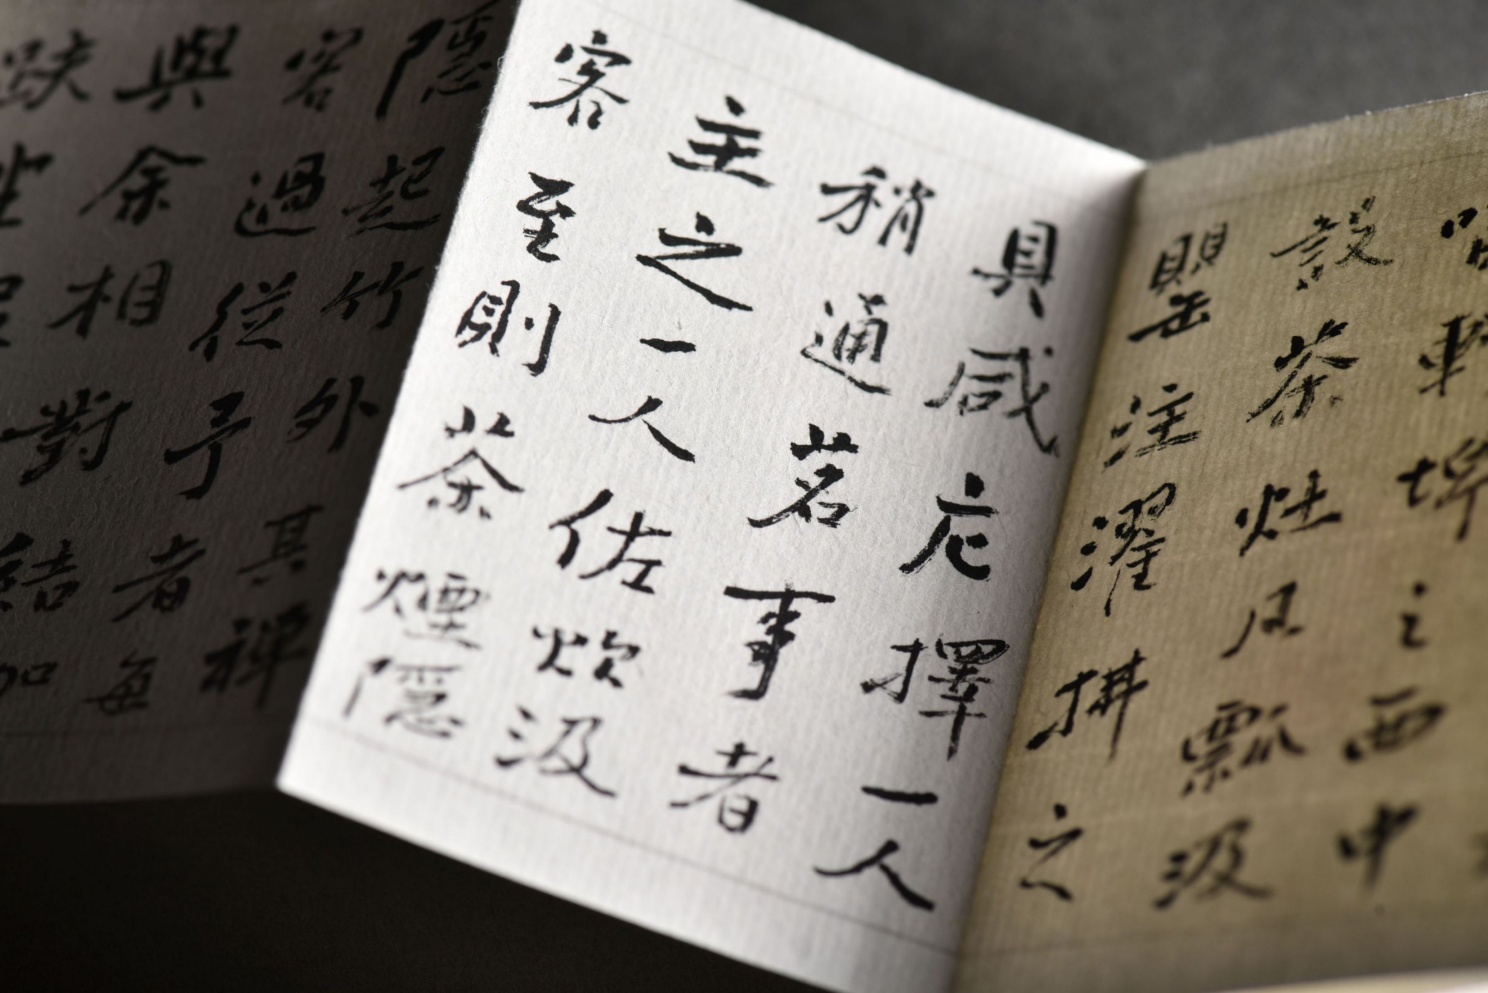 嘯軒埤之西中
設茶灶凡瓢汲
罌注濯拂之
具咸庀擇一人
稍通茗事者
主之一人佐炊汲
客至則茶煙隱
隱起竹外其禪
客過從予者每
與余相對結加
趺坐